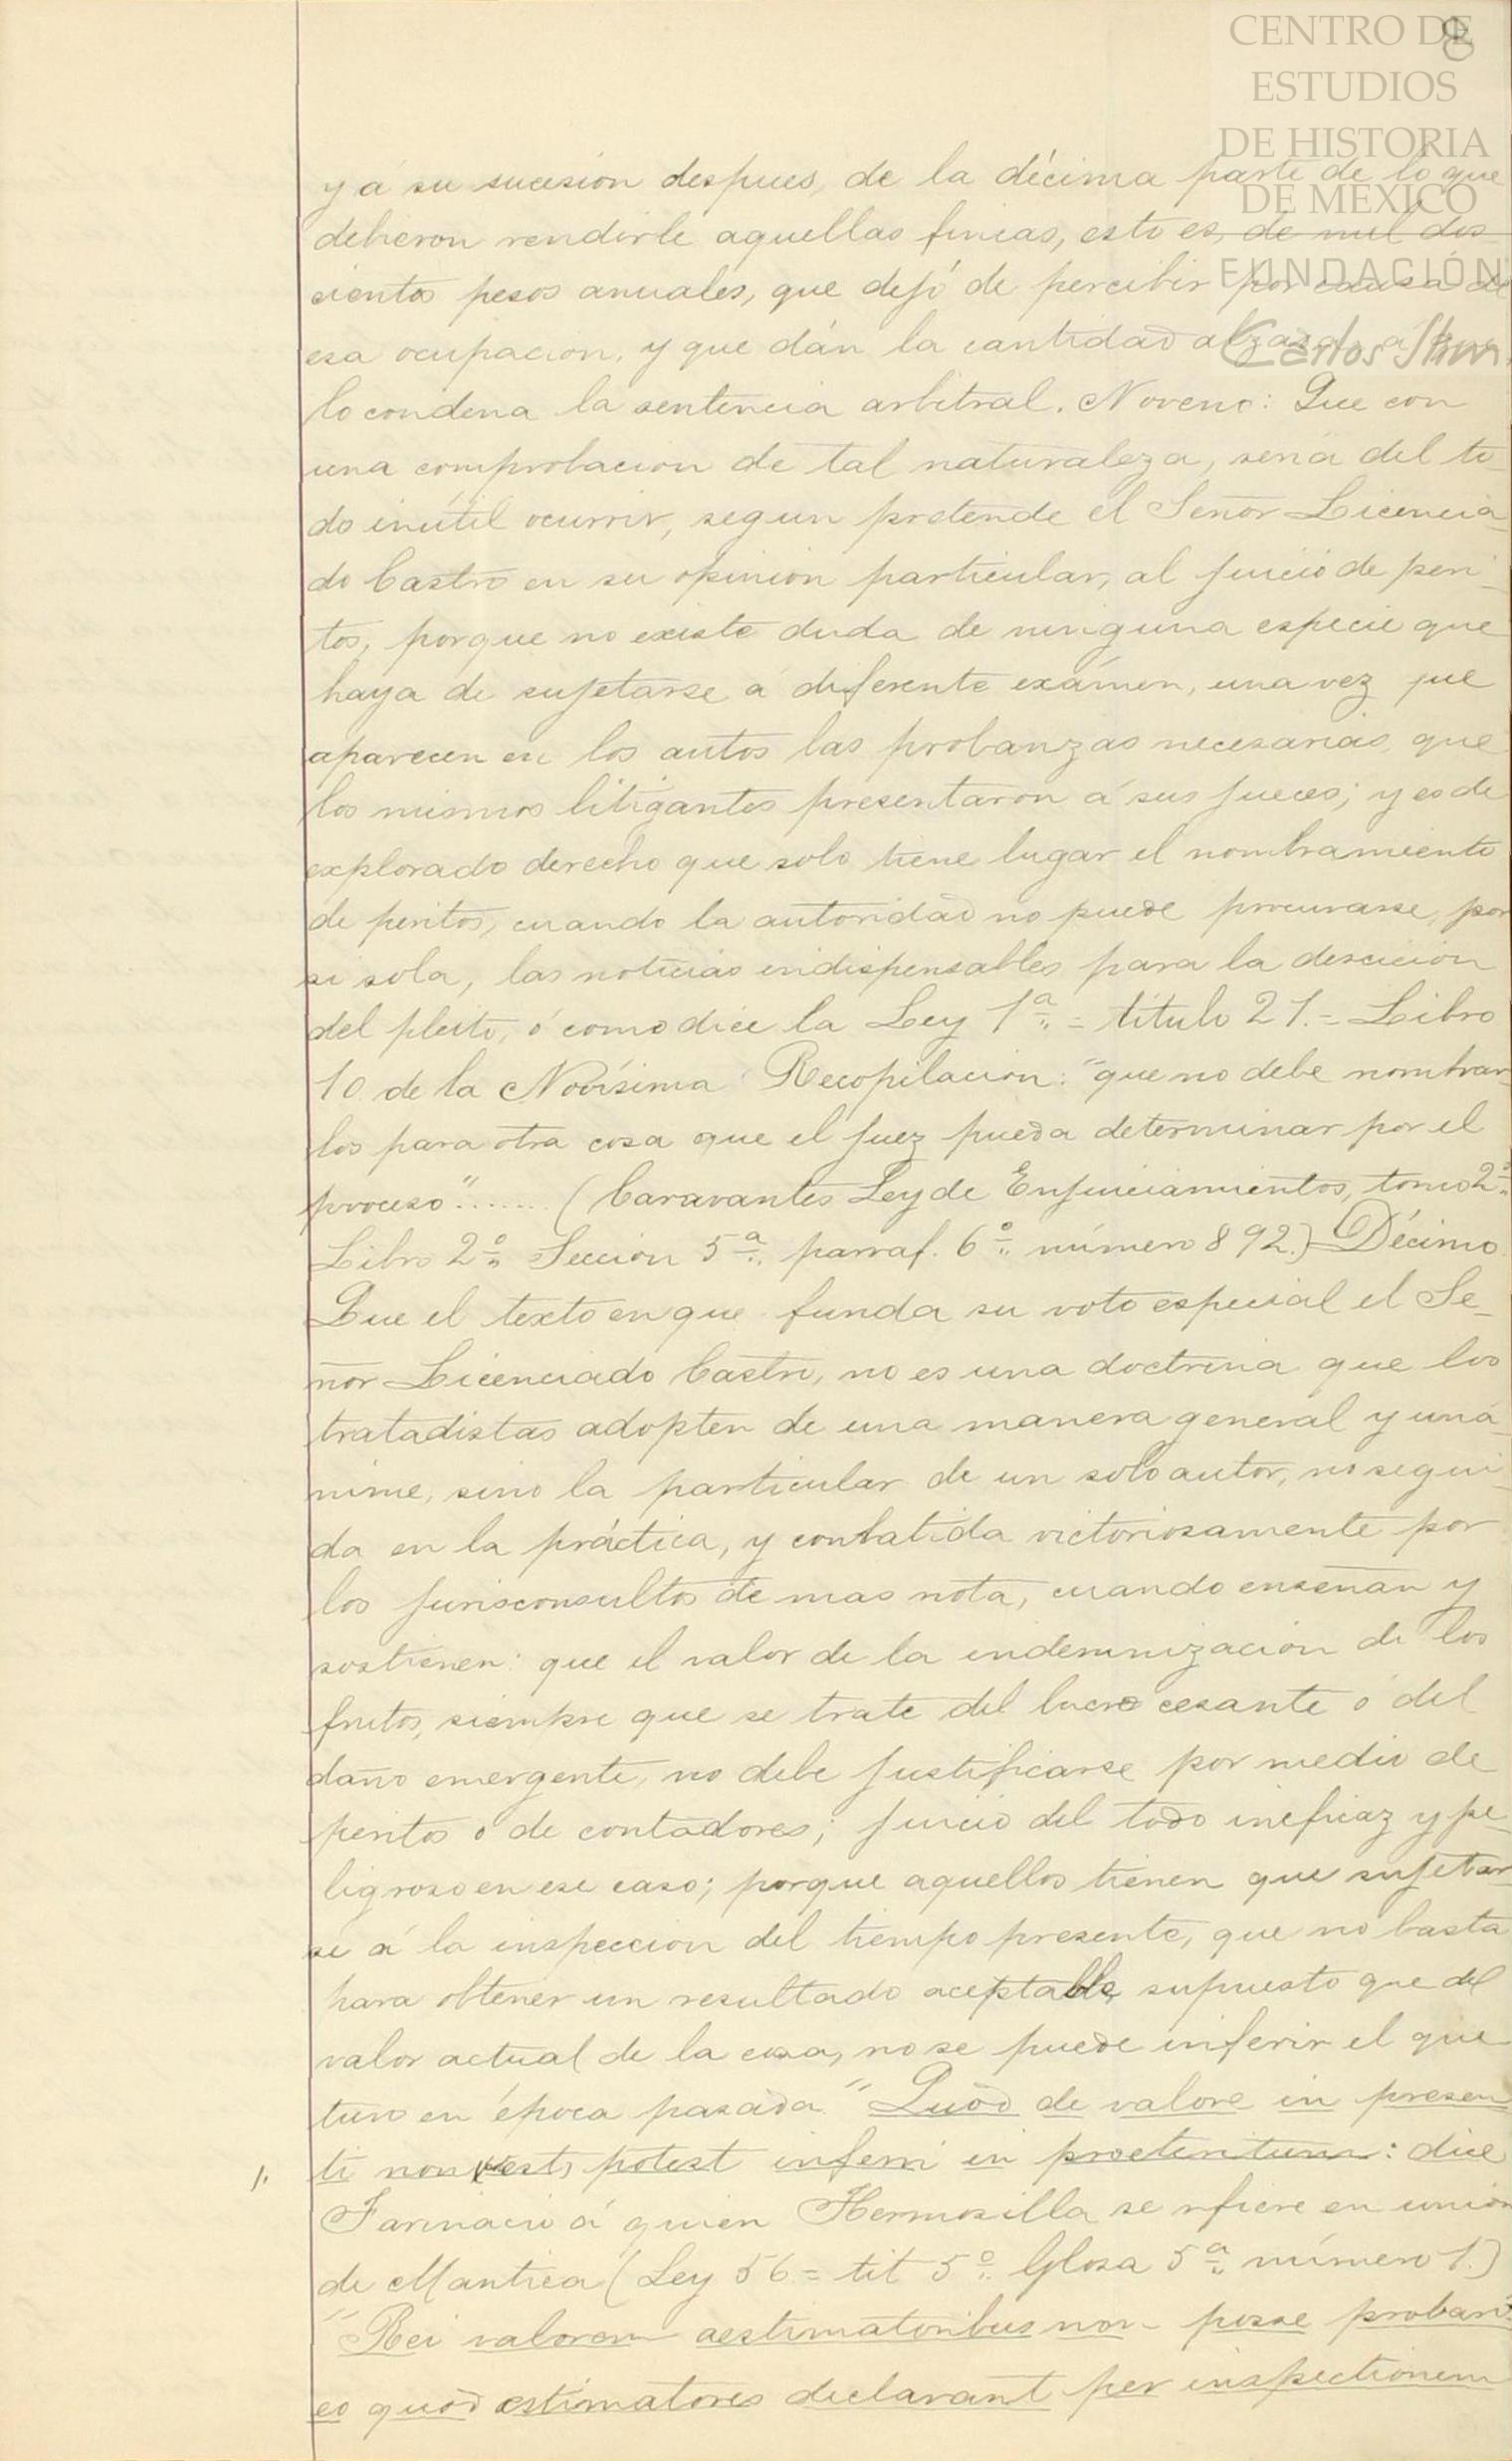 CENTRO DE
ESTUDIOS
DE HISTORIA
DE MÉXICO
FUNDACIÓN
Carlos Slim
8
y á su sucesion despues, de la décima parte de lo que
debieron rendirle aquellas fincas, esto es, de mil dos
cientos pesos anuales, que dejó de percibir por causa de
esa ocupacion, y que dán la cantidad alzada á que
lo condena la sentencia arbitral. Noveno: Que con
una comprobacion de tal naturaleza, seria del to_
do inútil ocurrir, segun pretende el Señor Licencia_
do Castro en su opinion particular, al juicio de peri_
tos, porque no existe duda de ninguna especie que
haya de sujetarse á diferente exámen, una vez que
aparecen en los autos las probanzas necesarias, que
los mismos litigantes presentaron á sus jueces; y es de
explorado derecho que solo tiene lugar el nombramiento
de peritos, cuando la autoridad no puede procurarse, por
si sola, las noticias indispensables para la descicion
del pleito, ó como dice la Ley 1ª = título 21. = Libro
10 de la Novísima Recopilacion: "que no debe nombrar
los para otra cosa que el juez pueda determinar por el
proceso"....... (Caravantes Ley de Enjuiciamientos, tomo 2º
Libro 2º Seccion 5ª parraf. 6º número 892.) Décimo
Que el texto en que funda su voto especial el Se_
ñor Licenciado Castro, no es una doctrina que los
tratadistas adopten de una manera general y uná_
nime, sino la particular de un solo autor, no segui_
da en la práctica, y conbatida victoriosamente por
los jurisconsultos de mas nota, cuando enseñan y
sostienen: que el valor de la indemnizacion de los
frutos, siempre que se trate del lucro cesante ó del
daño emergente, no debe justificarse por medio de
peritos ó de contadores; juicio del todo ineficaz y pe_
ligroso en ese caso; porque aquellos tienen que sujetar
se á la inspeccion del tiempo presente, que no basta
para obtener un resultado aceptable, supuesto que del
valor actual de la cosa, no se puede inferir el que
tuvo en época pasada "Quod de valore in presen
ti non potest inferri in proeteritum: dice
Farinacio á quien Hermosilla se rfiere en union
de Mantica (Ley 56 = tit 5º Glosa 5ª número 1.)
"Rei valorem aestimatoribus non posse probari
eo quod estimatores declarant per inspectionem